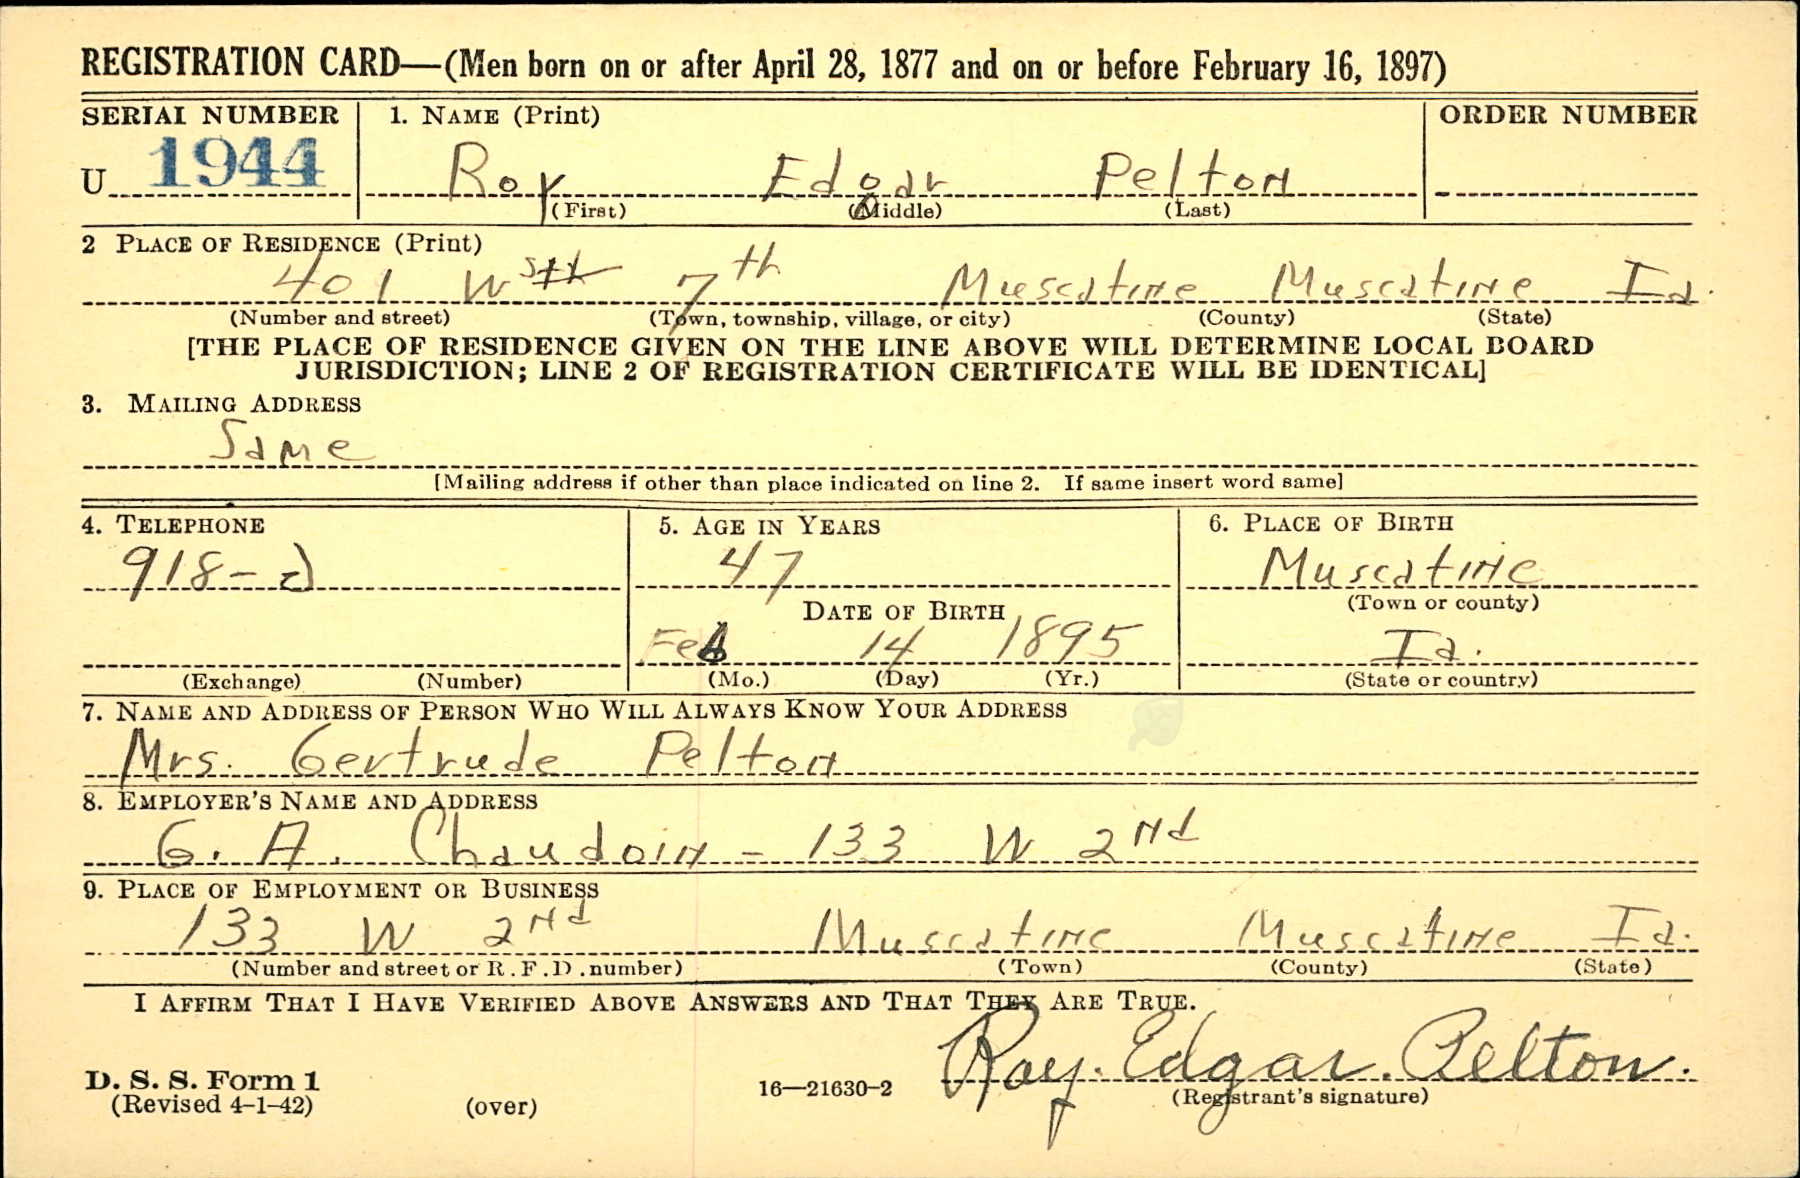 REGISTRATION CARD—(Men born on or after April 28, 1877 and on or before February 16, 1897)
SERIAL NUMBER 1. NAME (Print) ORDER NUMBER
U 1944 Roy Edgar Pelton
(First) (Middle) (Last)
2 PLACE OF RESIDENCE (Print)
401 W 7th Muscatine Muscatine Ia.
(Number and street) (Town, township, village, or city) (County) (State)
[THE PLACE OF RESIDENCE GIVEN ON THE LINE ABOVE WILL DETERMINE LOCAL BOARD
JURISDICTION; LINE 2 OF REGISTRATION CERTIFICATE WILL BE IDENTICAL]
3. MAILING ADDRESS
Same
[Mailing address if other than place indicated on line 2. If same insert word same]
4. TELEPHONE 5. AGE IN YEARS 6. PLACE OF BIRTH
918- 47 Muscatine
DATE OF BIRTH (Town or county)
Feb 14 1895 Ia.
(Exchange) (Number) (Mo.) (Day) (Yr.) (State or country)
7. NAME AND ADDRESS OF PERSON WHO WILL ALWAYS KNOW YOUR ADDRESS
Mrs. Gertrude Pelton
8. EMPLOYER'S NAME AND ADDRESS
G. A. Chaudoin - 133 W 2nd
9. PLACE OF EMPLOYMENT OR BUSINESS
133 W 2nd Muscatine Muscatine Ia.
(Number and street or R.F.D. number) (Town) (County) (State)
I AFFIRM THAT I HAVE VERIFIED ABOVE ANSWERS AND THAT THEY ARE TRUE.
Roy. Edgar. Pelton.
D. S. S. Form 1
(Revised 4-1-42) (over) 16—21630-2 (Registrant's signature)